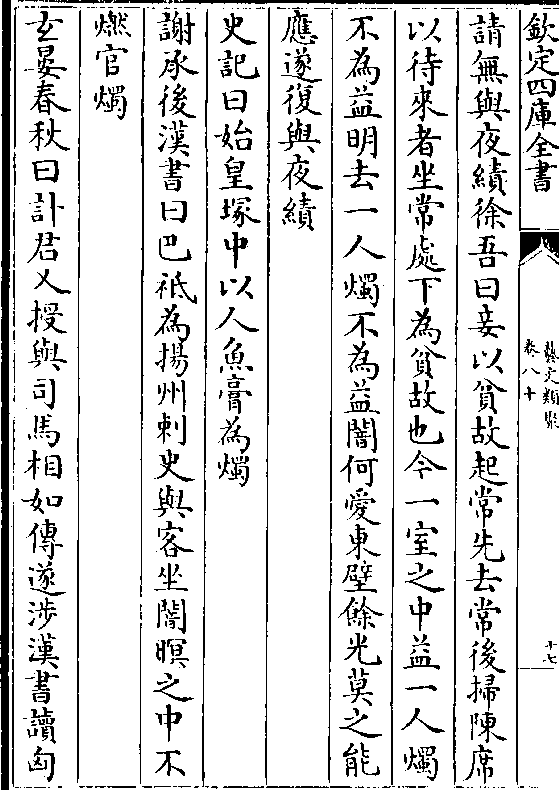 欽定四庫全書
藝文類聚
卷八十
十七
請無與夜績徐吾曰妾以貧故起常先去常後掃陳席
以待來者坐常處下為貧故也今一室之中益一人燭
不為益明去一人燭不為益闇何愛東壁餘光莫之能
應遂復與夜績
史記曰始皇塚中以人魚膏為燭
謝承後漢書曰巴祗為揚州刺史與客坐闇暝之中不
燃官燭
玄晏春秋曰計君乂授與司馬相如傳遂涉漢書讀匈